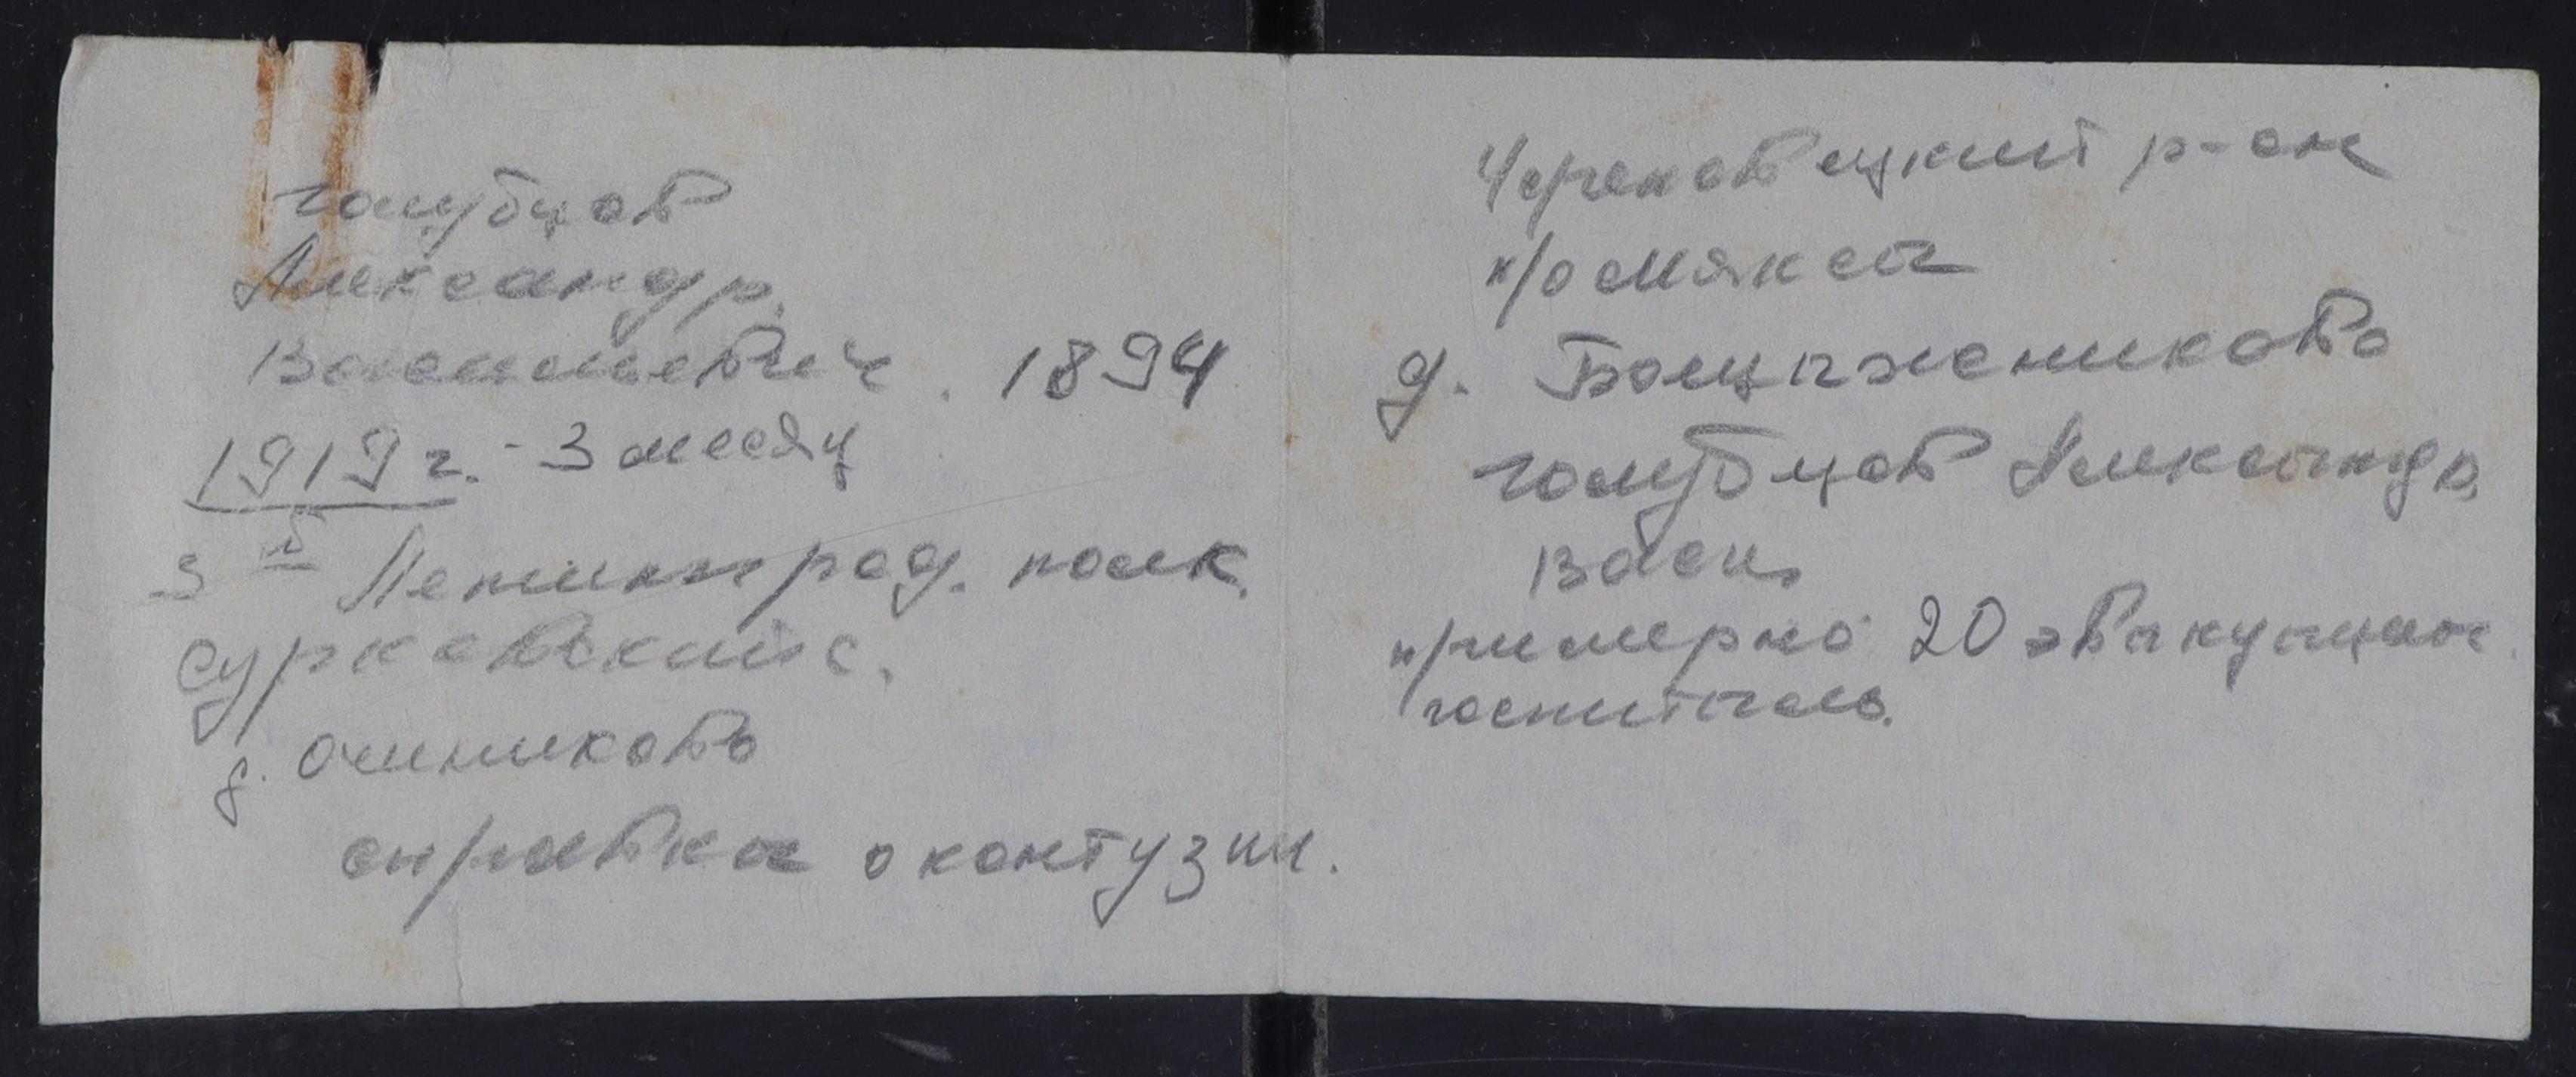 голубцов
Александр.
Васильевич. 1894
1919 г. - 3 месяц
3 й Ленинград. полк.
Сурковский с.
д. Очениково
справка о контузии.
Череповецкий р-он
п/о Мякса
д.
голубцов Александр.
Васил.
примерно 20 эвакуацион.
госпиталь.